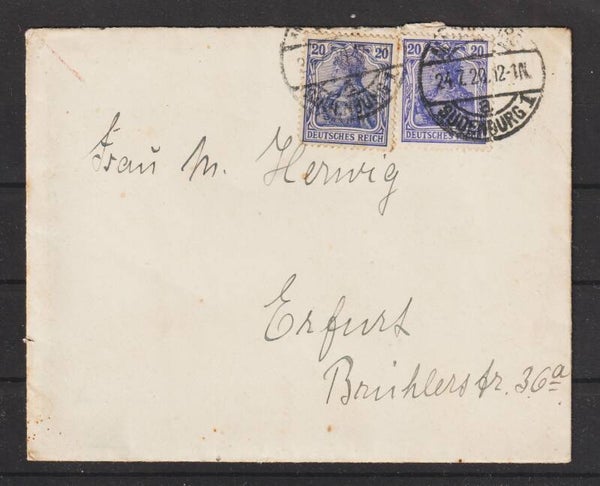 20 20
DEUTSCHES REICH
20 20
DEUTSCHES
24.7.20.12-1N.
a
Frau M. Herwig
Erfurt
Brühlerstr. 36a